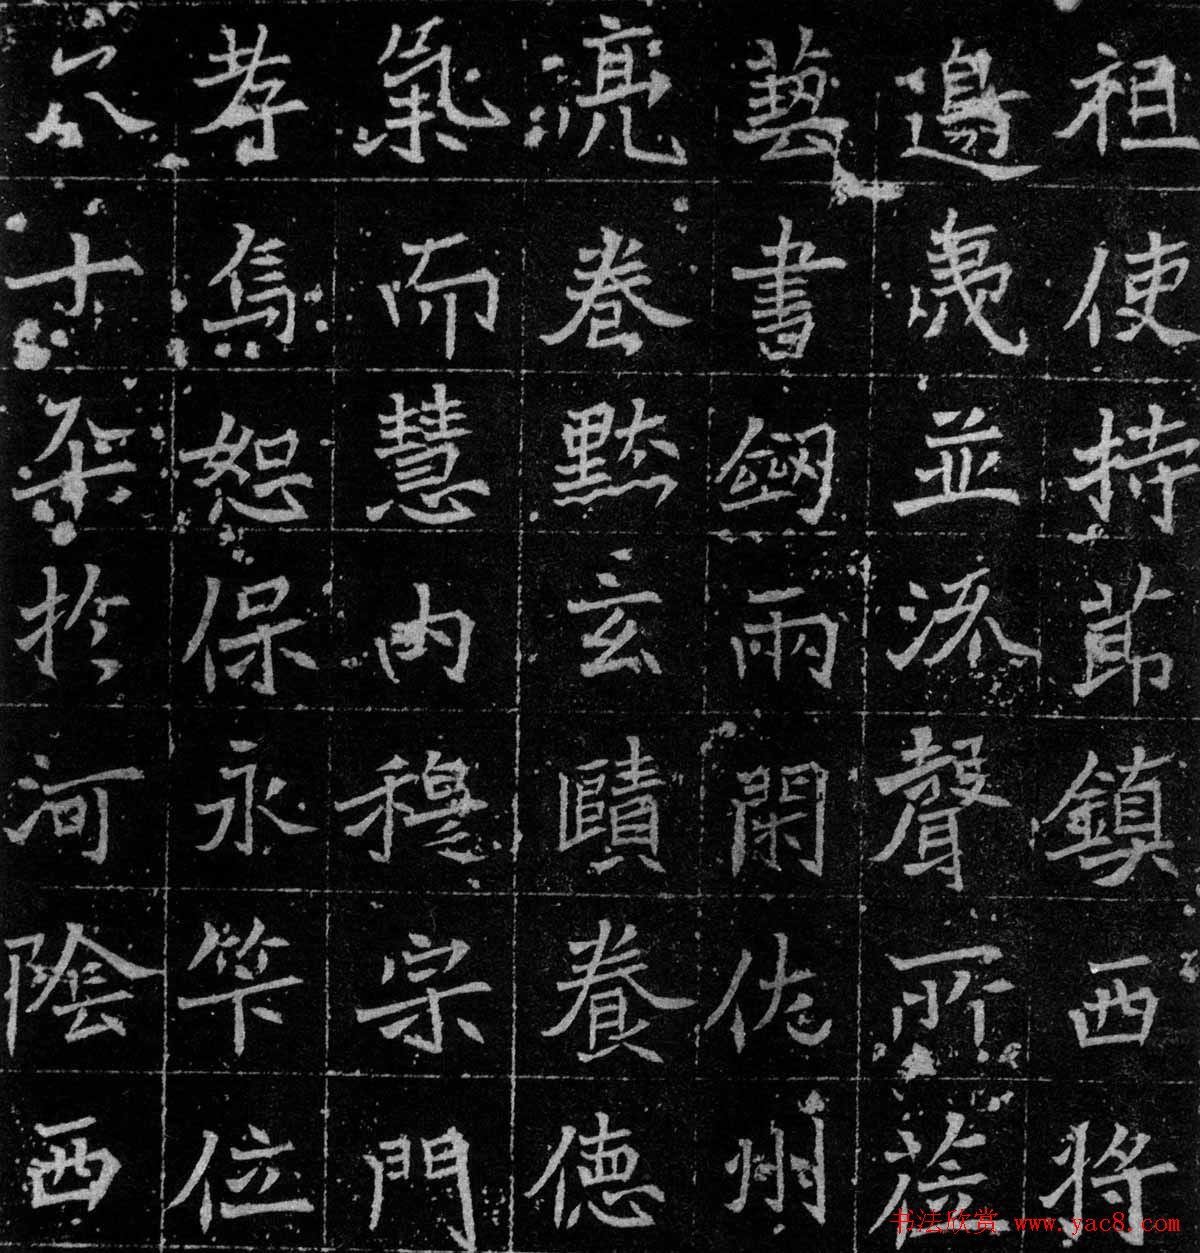 祖使持莭鎮西將
邊夷並流聲所莅
藝書釼兩閑佐州
亮卷黙玄賾養德
氣而慧内穆宗門
孝焉恕保永笇位
六十柒於河陰西
书法欣赏 www.yac8.com